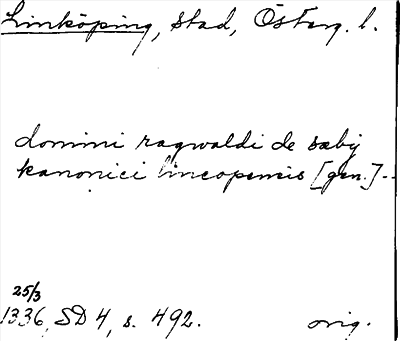 Linköping, stad, Österg. l.
domini ragwaldi de sæby
kanonici lincopensis [gen.]--
25/3
1336, SD 4, s. 492. orig.